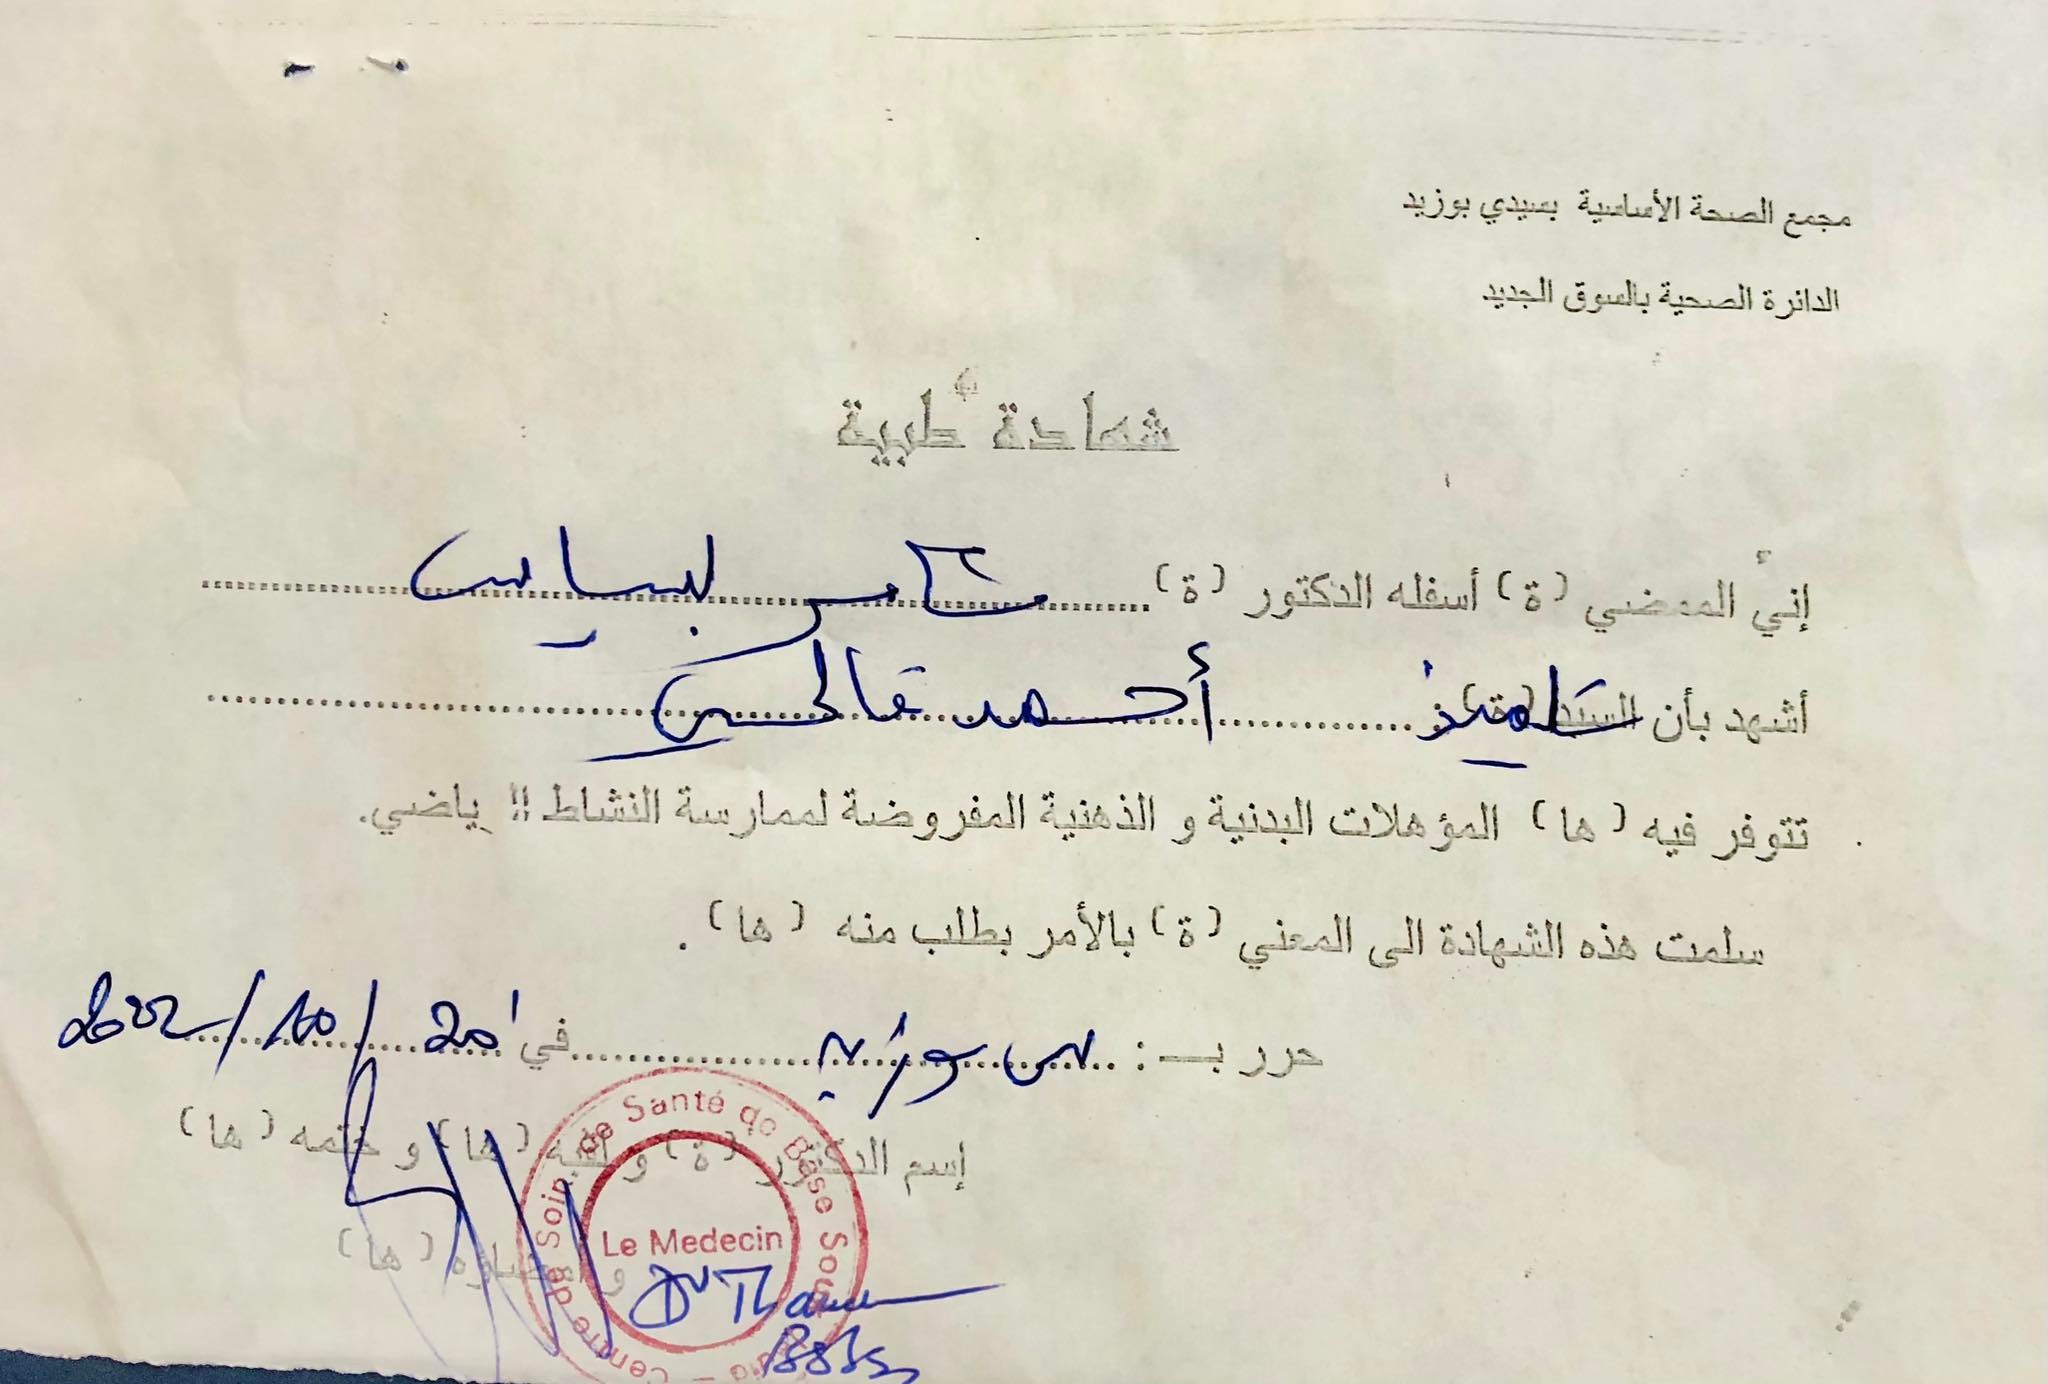 مجمع الصحة الأساسية بسيدي بوزيد
الدائرة الصحية بالسوق الجديد
شهادة طبية
إنّي الممضي (ة) أسفله الدكتور (ة)
أشهد بأن السيد (ة) أحمد
تتوفر فيه (ها) المؤهلات البدنية و الذهنية المفروضة لممارسة النشاط الرياضي.
سلمت هذه الشهادة الى المعني (ة) بالأمر بطلب منه (ها).
حرر بـ : س بوزيد في 20/10/2022
إسم الدكتور (ة) و لقبه (ها) و ختمه (ها)
و إمضاؤه (ها)
Centre de Soin de Santé de Base
Le Medecin
Dr